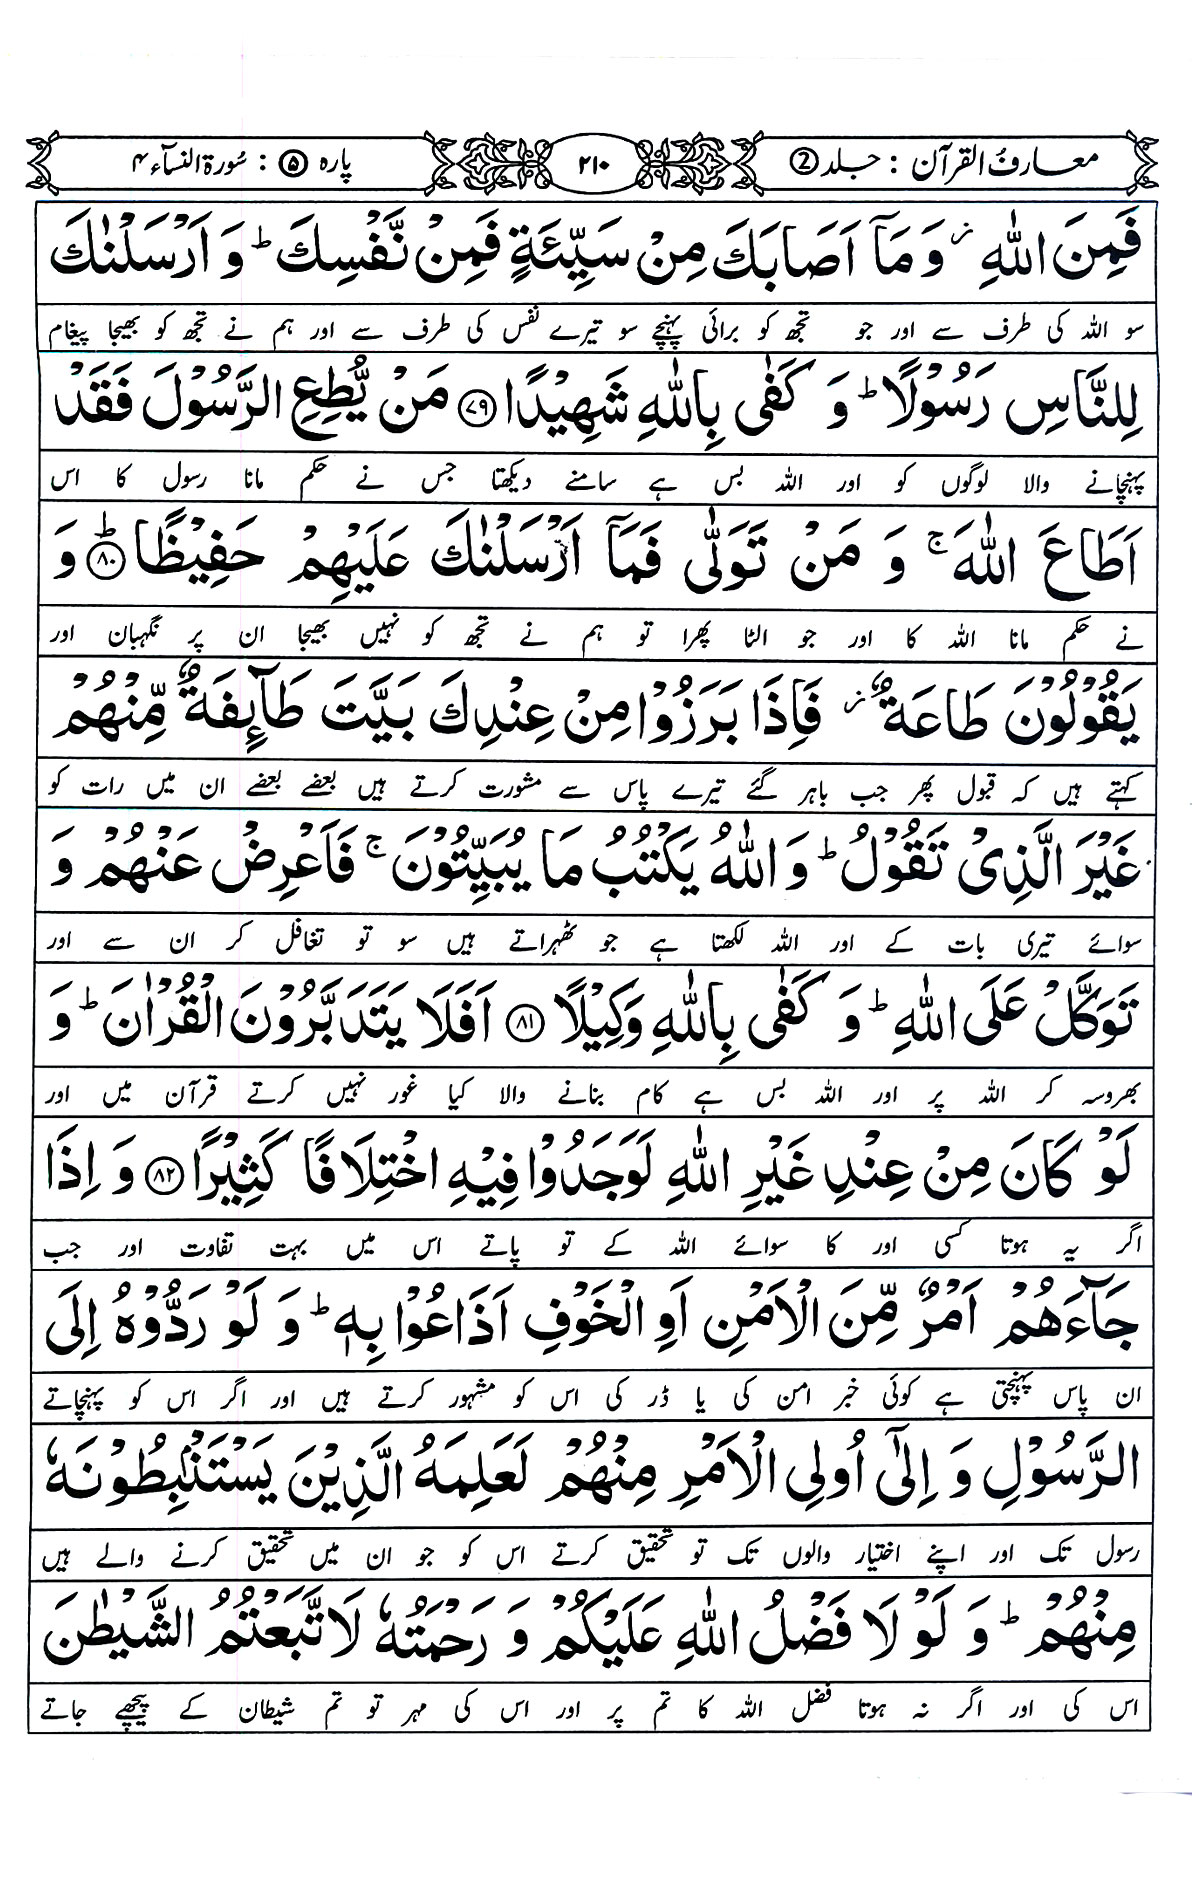 معارف القرآن : جلد 2
۲۱۰
پارہ ۵ : سُورۃ النسآء ۴
فَمِنَ اللّٰهِ ۫ وَ مَاۤ اَصَابَكَ مِنْ سَیِّئَةٍ فَمِنْ نَّفْسِكَ ؕ وَ اَرْسَلْنٰكَ
سو اللہ کی طرف سے اور جو تجھ کو برائی پہنچے سو تیرے نفس کی طرف سے اور ہم نے تجھ کو بھیجا پیغام
لِلنَّاسِ رَسُوْلًا ؕ وَ كَفٰی بِاللّٰهِ شَهِیْدًا ﴿۷۹﴾ مَنْ یُّطِعِ الرَّسُوْلَ فَقَدْ
پہنچانے والا لوگوں کو اور اللہ بس ہے سامنے دیکھتا جس نے حکم مانا رسول کا اس
اَطَاعَ اللّٰهَ ۚ وَ مَنْ تَوَلّٰی فَمَاۤ اَرْسَلْنٰكَ عَلَیْهِمْ حَفِیْظًا ﴿۸۰﴾ؕ وَ
نے حکم مانا اللہ کا اور جو الٹا پھرا تو ہم نے تجھ کو نہیں بھیجا ان پر نگہبان اور
یَقُوْلُوْنَ طَاعَةٌ ۫ فَاِذَا بَرَزُوْا مِنْ عِنْدِكَ بَیَّتَ طَآىِٕفَةٌ مِّنْهُمْ
کہتے ہیں کہ قبول پھر جب باہر گئے تیرے پاس سے مشورت کرتے ہیں بعضے بعضے ان میں رات کو
غَیْرَ الَّذِیْ تَقُوْلُ ؕ وَ اللّٰهُ یَكْتُبُ مَا یُبَیِّتُوْنَ ۚ فَاَعْرِضْ عَنْهُمْ وَ
سوائے تیری بات کے اور اللہ لکھتا ہے جو ٹھہراتے ہیں سو تو تغافل کر ان سے اور
تَوَكَّلْ عَلَی اللّٰهِ ؕ وَ كَفٰی بِاللّٰهِ وَكِیْلًا ﴿۸۱﴾ اَفَلَا یَتَدَبَّرُوْنَ الْقُرْاٰنَ ؕ وَ
بھروسہ کر اللہ پر اور اللہ بس ہے کام بنانے والا کیا غور نہیں کرتے قرآن میں اور
لَوْ كَانَ مِنْ عِنْدِ غَیْرِ اللّٰهِ لَوَجَدُوْا فِیْهِ اخْتِلَافًا كَثِیْرًا ﴿۸۲﴾ وَ اِذَا
اگر یہ ہوتا کسی اور کا سوائے اللہ کے تو پاتے اس میں بہت تفاوت اور جب
جَآءَهُمْ اَمْرٌ مِّنَ الْاَمْنِ اَوِ الْخَوْفِ اَذَاعُوْا بِهٖ ؕ وَ لَوْ رَدُّوْهُ اِلَی
ان پاس پہنچتی ہے کوئی خبر امن کی یا ڈر کی اس کو مشہور کرتے ہیں اور اگر اس کو پہنچاتے
الرَّسُوْلِ وَ اِلٰۤی اُولِی الْاَمْرِ مِنْهُمْ لَعَلِمَهُ الَّذِیْنَ یَسْتَنْۢبِطُوْنَهٗ
رسول تک اور اپنے اختیار والوں تک تو تحقیق کرتے اس کو جو ان میں تحقیق کرنے والے ہیں
مِنْهُمْ ؕ وَ لَوْ لَا فَضْلُ اللّٰهِ عَلَیْكُمْ وَ رَحْمَتُهٗ لَاتَّبَعْتُمُ الشَّیْطٰنَ
اس کی اور اگر نہ ہوتا فضل اللہ کا تم پر اور اس کی مہر تو تم شیطان کے پیچھے جاتے